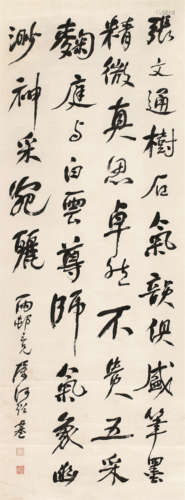 張文通樹石氣韻俱盛筆墨
精微真思卓然不貴五采
麴庭与白雲尊師氣象幽
渺神采宛麗
雨邨